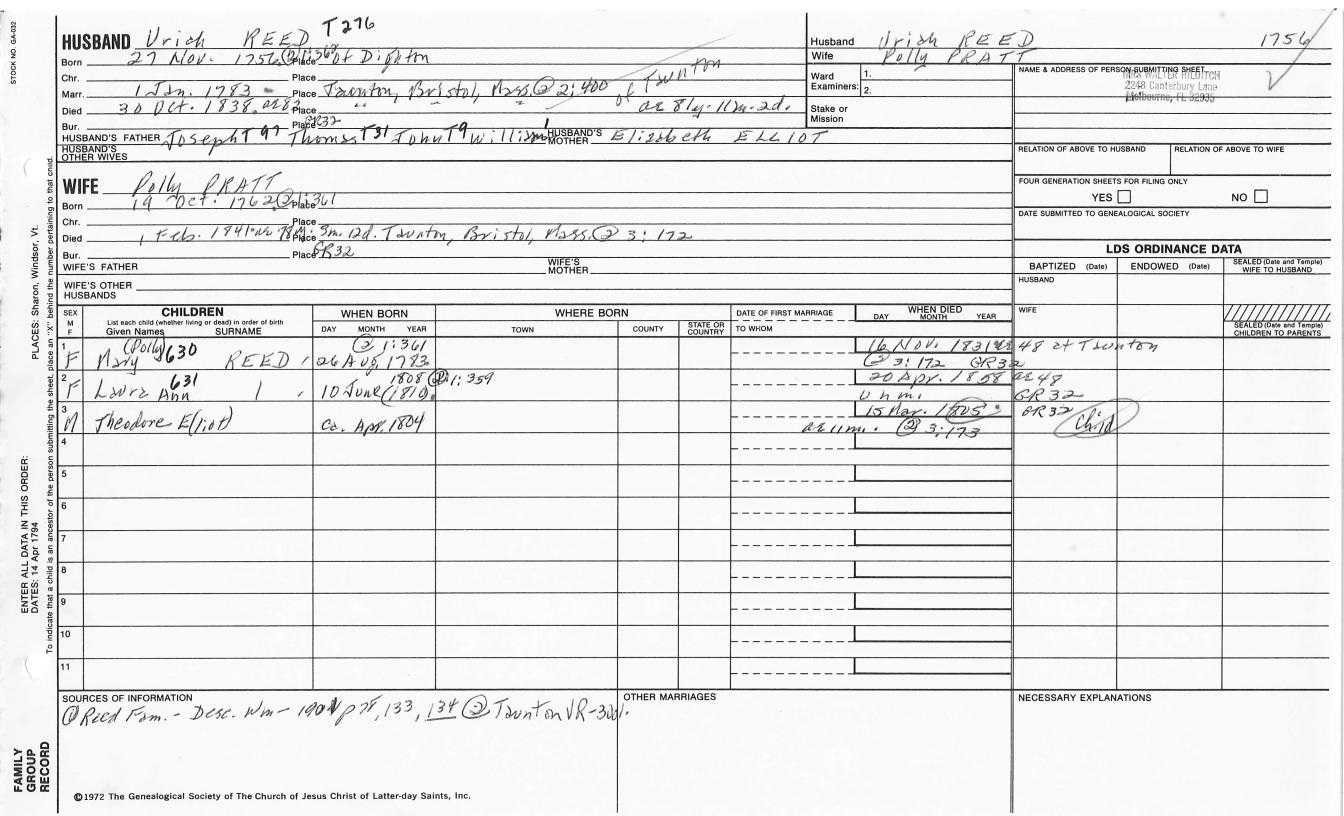 STOCK NO. GA-032
T276
HUSBAND Urich REED
Born 27 Nov. 1756 Place of Dighton
Chr. Place
Marr. 1 Jan. 1783 - Place Taunton, Bristol, Mass. ② 2:400 of Taunton
Died 30 Oct. 1838 Place " " " ae 81y.11m.2d.
Bur. Place GR32
HUSBAND'S FATHER Joseph T97 Thomas T31 John T9 William 1 HUSBAND'S MOTHER Elizabeth ELLIOT
HUSBAND'S OTHER WIVES
WIFE Polly PRATT
Born 19 Oct. 1762 ② 1:361 Place
Chr. Place
Died 1 Feb. 1841 3m. 12d. Taunton, Bristol, Mass. ② 3:172
Bur. Place GR32
WIFE'S FATHER WIFE'S MOTHER
WIFE'S OTHER HUSBANDS
Husband Urich REED 1756
Wife Polly PRATT
Ward Examiners: 1.
2.
Stake or Mission
NAME & ADDRESS OF PERSON SUBMITTING SHEET
MRS WALTER HILDITCH
2248 Canterbury Lane
Melbourne, FL 32935
RELATION OF ABOVE TO HUSBAND RELATION OF ABOVE TO WIFE
FOUR GENERATION SHEETS FOR FILING ONLY
YES NO
DATE SUBMITTED TO GENEALOGICAL SOCIETY
LDS ORDINANCE DATA
BAPTIZED (Date) ENDOWED (Date) SEALED (Date and Temple) WIFE TO HUSBAND
HUSBAND
WIFE
SEALED (Date and Temple) CHILDREN TO PARENTS
SEX M F
CHILDREN
List each child (whether living or dead) in order of birth
Given Names SURNAME
WHEN BORN
DAY MONTH YEAR
WHERE BORN
TOWN COUNTY STATE OR COUNTRY
DATE OF FIRST MARRIAGE
TO WHOM
WHEN DIED
DAY MONTH YEAR
1 (Polly) 630 ② 1:361 16 Nov. 1831 ae 48 at Taunton
F Mary REED 26 Aug 1783 ② 3:172 GR32
2 631 1808 ② 1:359 20 Apr. 1858 ae 48
F Laura Ann 10 June (1810) unm. GR32
3 15 Mar. 1805 GR32
M Theodore E(liot) ca. Apr. 1804 ae 11m. ② 3:173 Child
4
5
6
7
8
9
10
11
SOURCES OF INFORMATION
① Reed Fam. - Desc. Wm - 1901 p 78, 133, 134 ② Taunton VR-3vol.
OTHER MARRIAGES
NECESSARY EXPLANATIONS
©1972 The Genealogical Society of The Church of Jesus Christ of Latter-day Saints, Inc.
FAMILY GROUP RECORD
ENTER ALL DATA IN THIS ORDER:
DATES: 14 Apr 1794
PLACES: Sharon, Windsor, Vt.
To indicate that a child is an ancestor of the person submitting the sheet, place an "X" behind the number pertaining to that child.